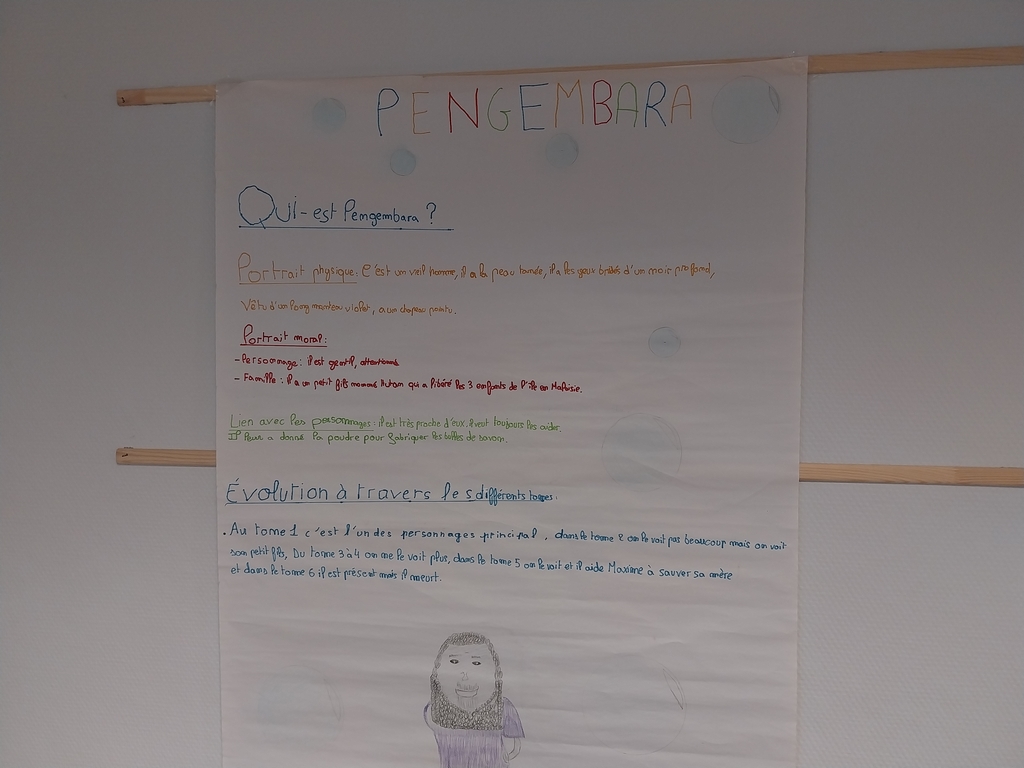 PENGEMBARA
Qui-est Pengembara ?
Portrait physique : C'est un vieil homme, il a la peau tannée, il a les yeux bridés d'un noir profond,
Vêtu d'un long manteau violet, a un chapeau pointu.
Portrait moral :
- Personnage : il est gentil, attentionné
- Famille : il a un petit fils nommé Hutan qui a libéré les 3 enfants de l'île en Malaisie.
Lien avec les personnages : il est très proche d'eux, il veut toujours les aider.
Il leur a donné la poudre pour fabriquer les bulles de savon.
Évolution à travers les différents tomes :
. Au tome 1 c'est l'un des personnages principal, dans le tome 2 on le voit pas beaucoup mais on voit
son petit fils, Du tome 3 à 4 on ne le voit plus, dans le tome 5 on le voit et il aide Maxime à sauver sa mère
et dans le tome 6 il est présent mais il meurt.